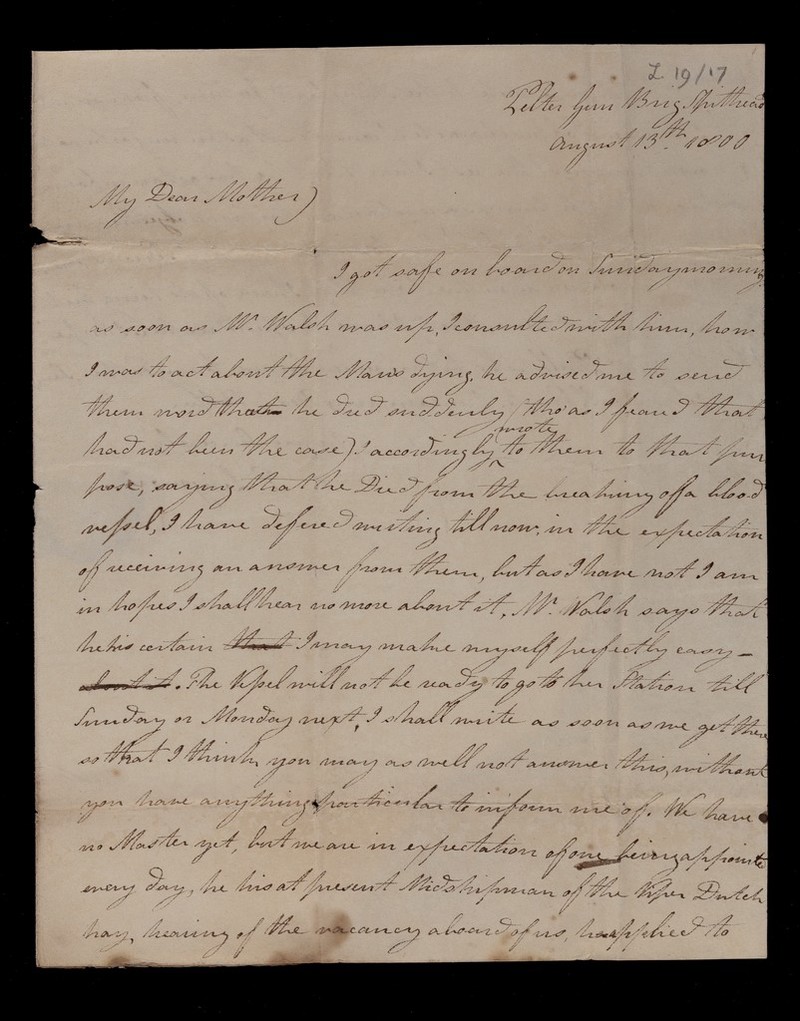 L 19/17
Pelter Gun Brig Spithead
August 13th. 1800
My Dear Mother)
I got safe on board on Sunday morning
as soon as Mr. Walsh was up, I consulted with him, how
I was to act about the Mans dying, he advised me to send
them word that he died suddenly (tho' as I feared that
had not been the case) I accordingly wrote to them to that pur
pose, saying that he Died from the breaking of a blood
vessel, I have defered writing till now, in the expectation
of receiving an answer from them, but as I have not I am
in hopes I shall hear no more about it, Mr. Walsh says that
he his certain that I may make myself perfectly easy –
about it. The Vessel will not be ready to go to her Station till
Sunday or Monday next, I shall write as soon as we get there
so that I think you may as well not answer this, without
you have anything particular to inform me of. We have
no Master yet, but we are in expectation of one being appointed
every day, he his at present Midshipman of the Viper Dutch
hoy, hearing of the vacancy aboard of us, he applied to